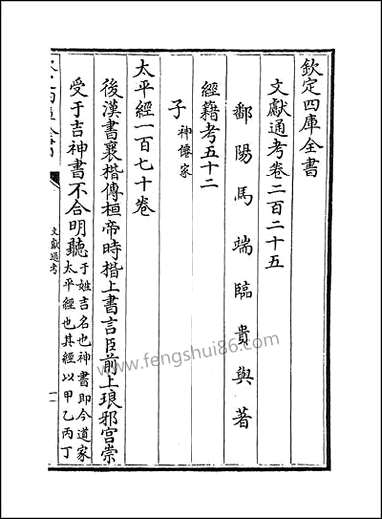 欽定四庫全書
文獻通考卷二百二十五
鄱陽馬端臨貴與著
經籍考五十二
子神僊家
太平經一百七十卷
後漢書襄楷傳桓帝時楷上書言臣前上琅邪宮崇
受于吉神書不合明聽于姓吉名也神書即今道家
太平經也其經以甲乙丙丁
文獻通考
www.fengshui86.com